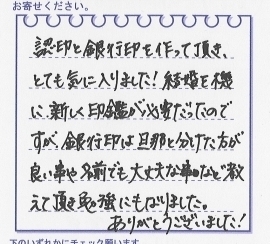 お寄せください。
認印と銀行印を作って頂き、
とても気に入りました！結婚を機
に新しく印鑑が必要だったので
すが、銀行印は旦那と分けた方が
良い事や名前でも大丈夫な事など教
えて頂き勉強にもなりました。
ありがとうございました！
下のいずれかにチェック願います